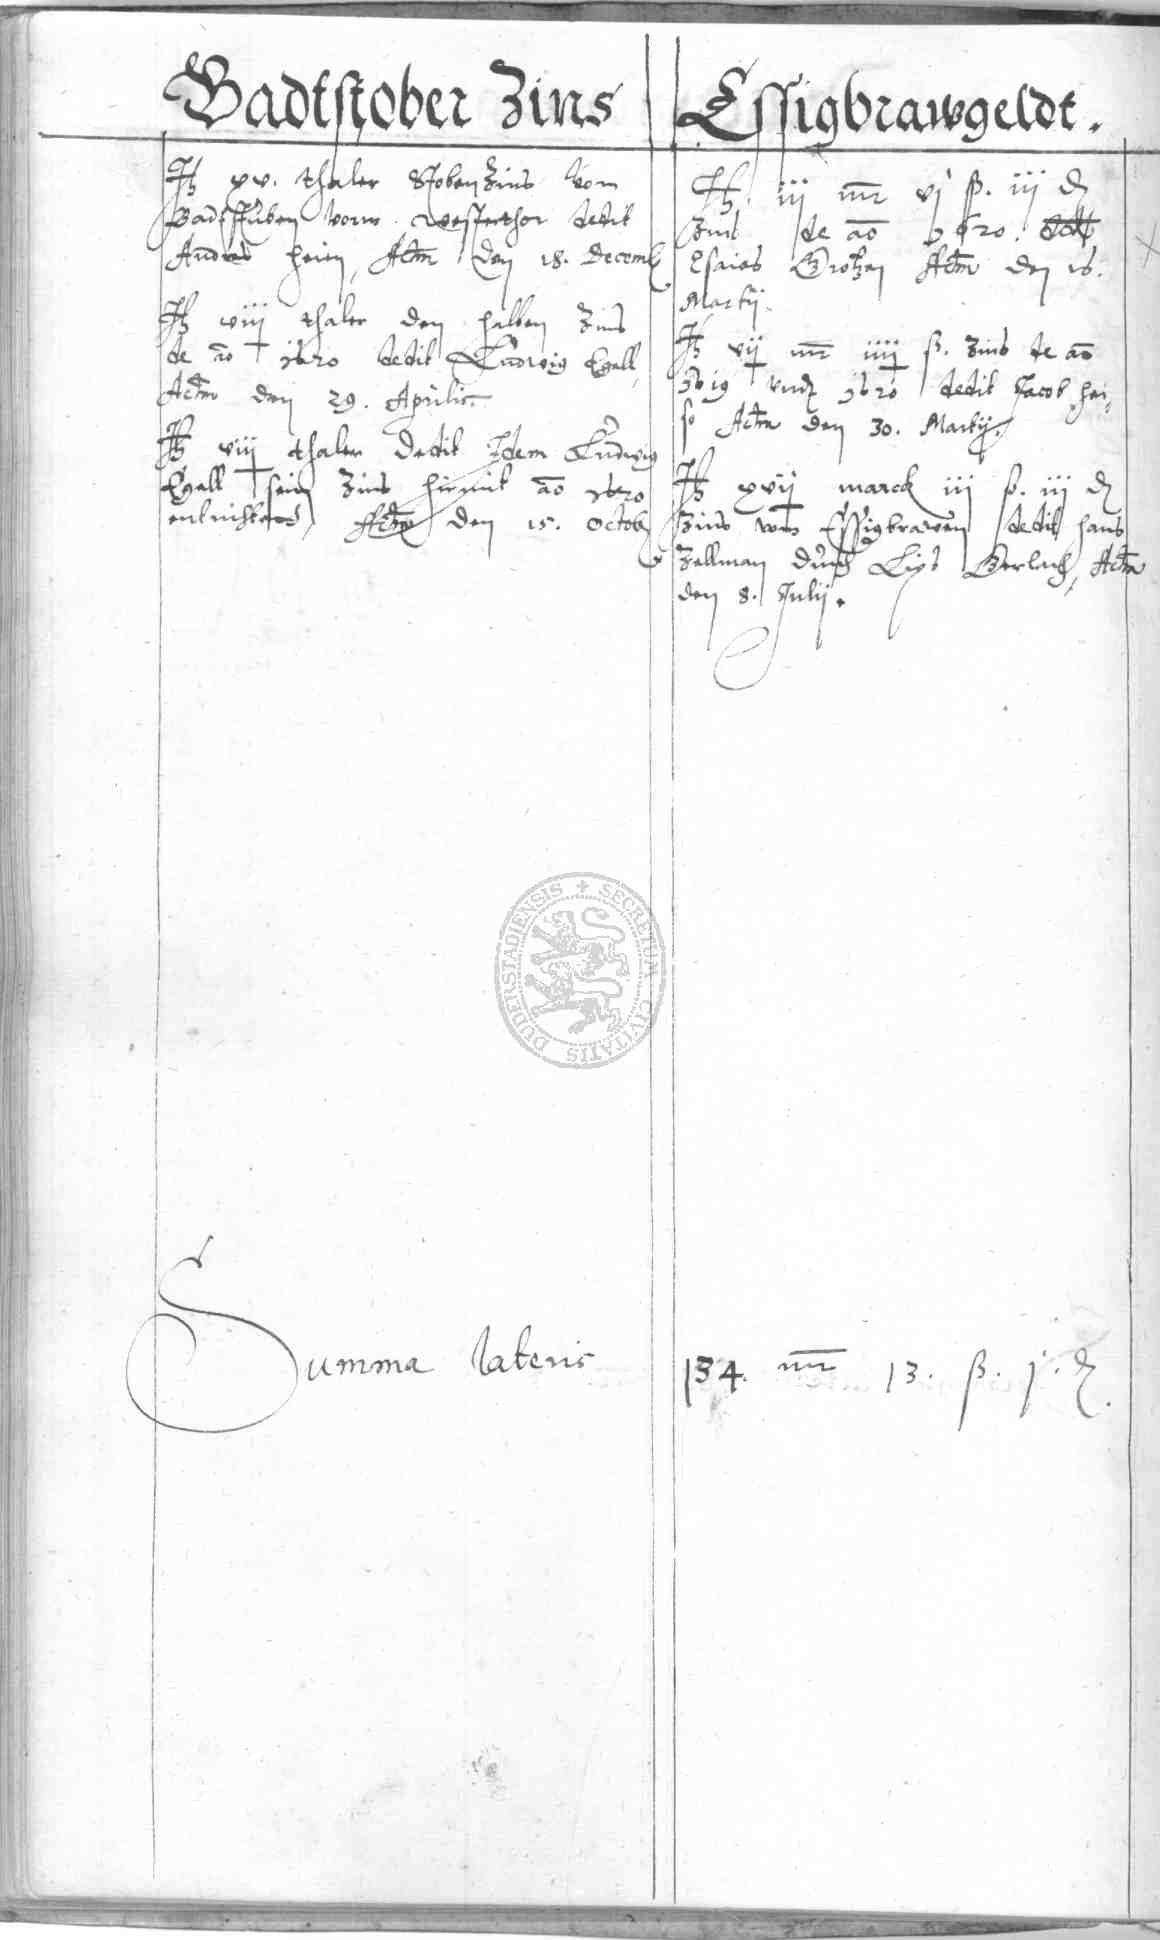 Badtstober Zins
It xv. thaler Stoben Zins vom
Badtstuben vorm Westerthor dedit
Andres Heien, Actm den 18. Decemb
It viij thaler den halben Zins
de ao 1620 dedit Ludwig Egell,
Actm den 29. Aprilis
It viij thaler dedit Idem Ludwig
Egell sein Zins hirmit ao 1620
entrichtett, Actm den 15. Octob
Essigbrawgeldt.
It iij mr vj ß. iij d
Zins de ao 1620.
Esaias Grotzen Actm den 16.
Martij
It vij mr iiij ß. Zins de ao
1619 vnd 1620 dedit Jacob Hei-
so Actm den 30. Martij.
It xvij marck iij ß. iij d
Zins vom Essigbrawen dedit Hans
Zellman durch Lips Gerlach, Actm
den 8. Julij.
SECRETUM CIVITATIS DUDERSTADIENSIS
Summa lateris 134. mr 13. ß. j. d.